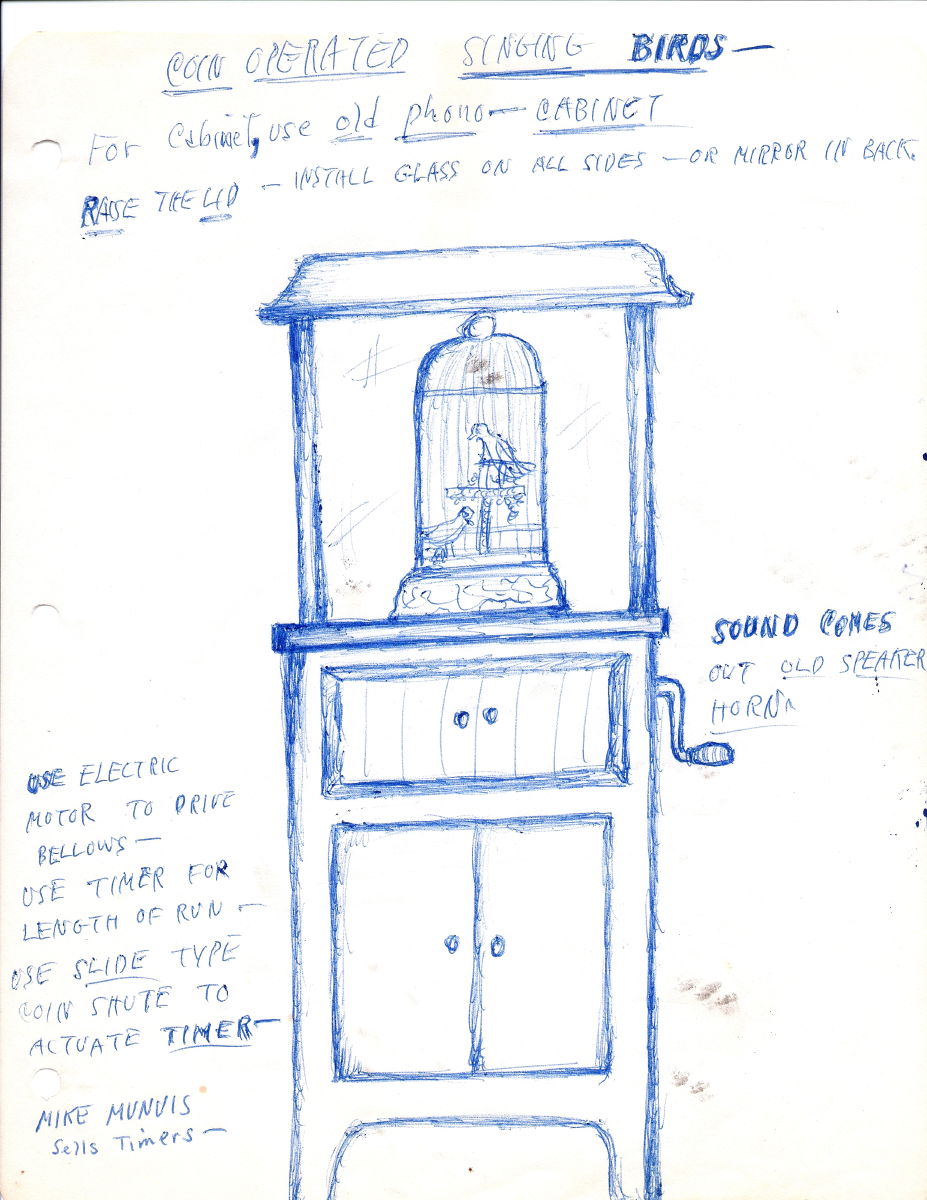 COIN OPERATED SINGING BIRDS—
For Cabinet, use old phono— CABINET
RAISE THE LID — INSTALL GLASS ON ALL SIDES — OR MIRROR IN BACK.
SOUND COMES
OUT OLD SPEAKER
HORN
USE ELECTRIC
MOTOR TO DRIVE
BELLOWS—
USE TIMER FOR
LENGTH OF RUN —
USE SLIDE TYPE
COIN SHUTE TO
ACTUATE TIMER—
MIKE MUNVIS
Sells Timers—